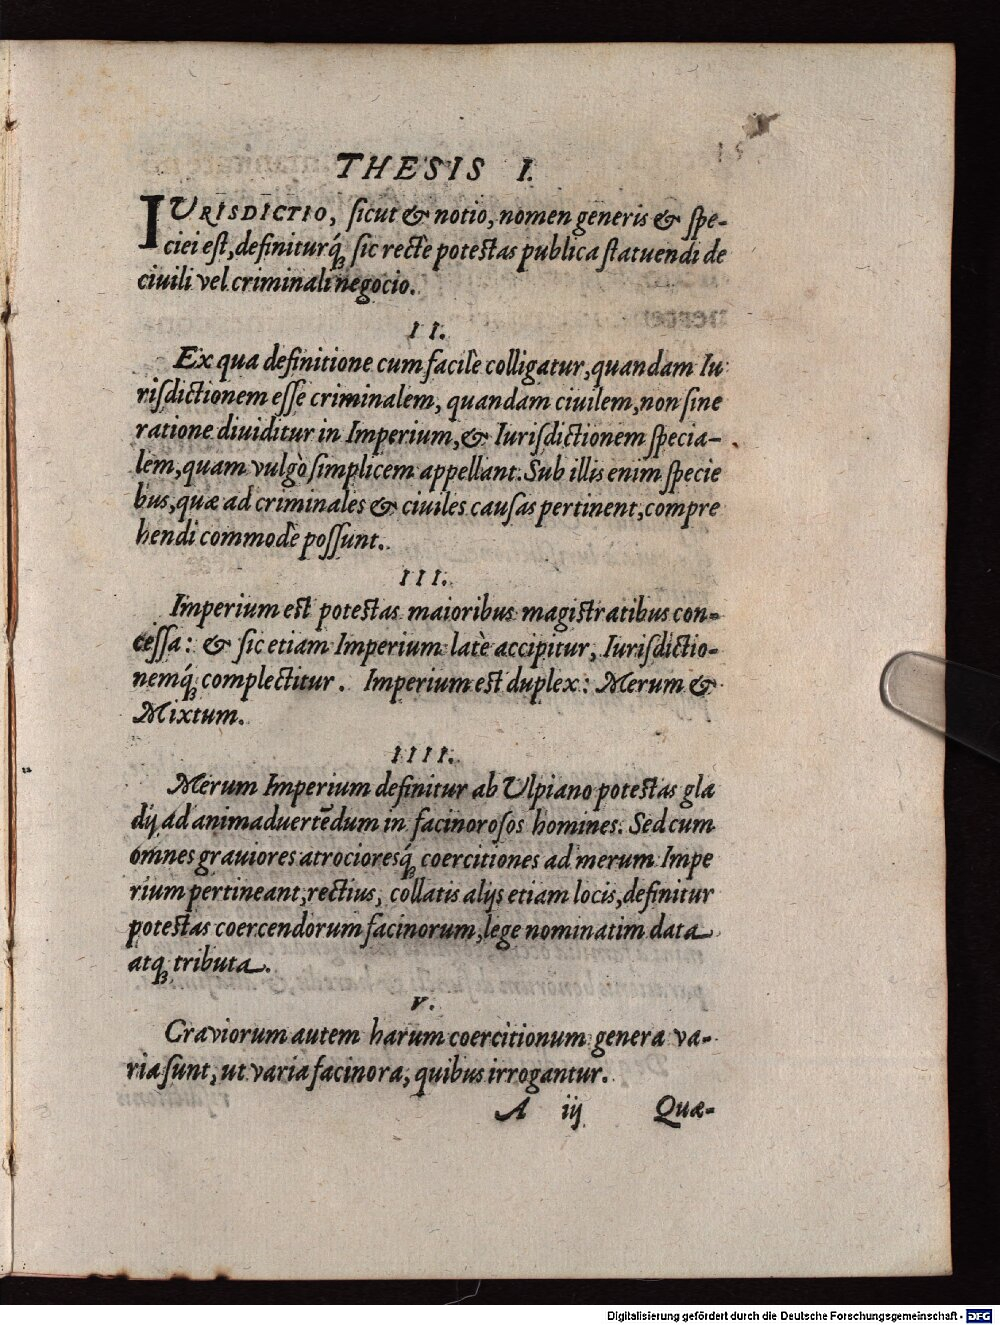 THESIS I.
IURISDICTIO, sicut & notio, nomen generis & spe-
ciei est, definiturq́ꝫ sic rectè potestas publica statuendi de
ciuili vel criminali negocio.
II.
Ex qua definitione cum facilè colligatur, quandam Iu
risdictionem esse criminalem, quandam ciuilem, non sine
ratione diuiditur in Imperium, & Iurisdictionem specia-
lem, quam vulgò simplicem appellant. Sub illis enim specie
bus, quæ ad criminales & ciuiles causas pertinent, compre
hendi commodè possunt.
III.
Imperium est potestas maioribus magistratibus con-
cessa: & sic etiam Imperium latè accipitur, Iurisdictio-
nemq́ꝫ complectitur. Imperium est duplex: Merum &
Mixtum.
IIII.
Merum Imperium definitur ab Ulpiano potestas gla
dij ad animaduertēdum in facinorosos homines. Sed cum
omnes grauiores atrocioresq́ꝫ coercitiones ad merum Impe
rium pertineant, rectius, collatis alijs etiam locis, definitur
potestas coercendorum facinorum, lege nominatim data
atqꝫ tributa.
V.
Graviorum autem harum coercitionum genera va-
ria sunt, ut varia facinora, quibus irrogantur.
A iij Quæ-
Digitalisierung gefördert durch die Deutsche Forschungsgemeinschaft - DFG